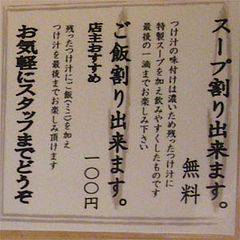 スープ割り出来ます。
無料
つけ汁の味付けは濃いため残ったつけ汁に
特製スープを加え飲みやすくしたものです
最後の一滴までお楽しみ下さい
ご飯割り出来ます。
一〇〇円
店主おすすめ
残ったつけ汁にご飯(ミニ)を加え
つけ汁を最後までお楽しみ頂けます
お気軽にスタッフまでどうぞ